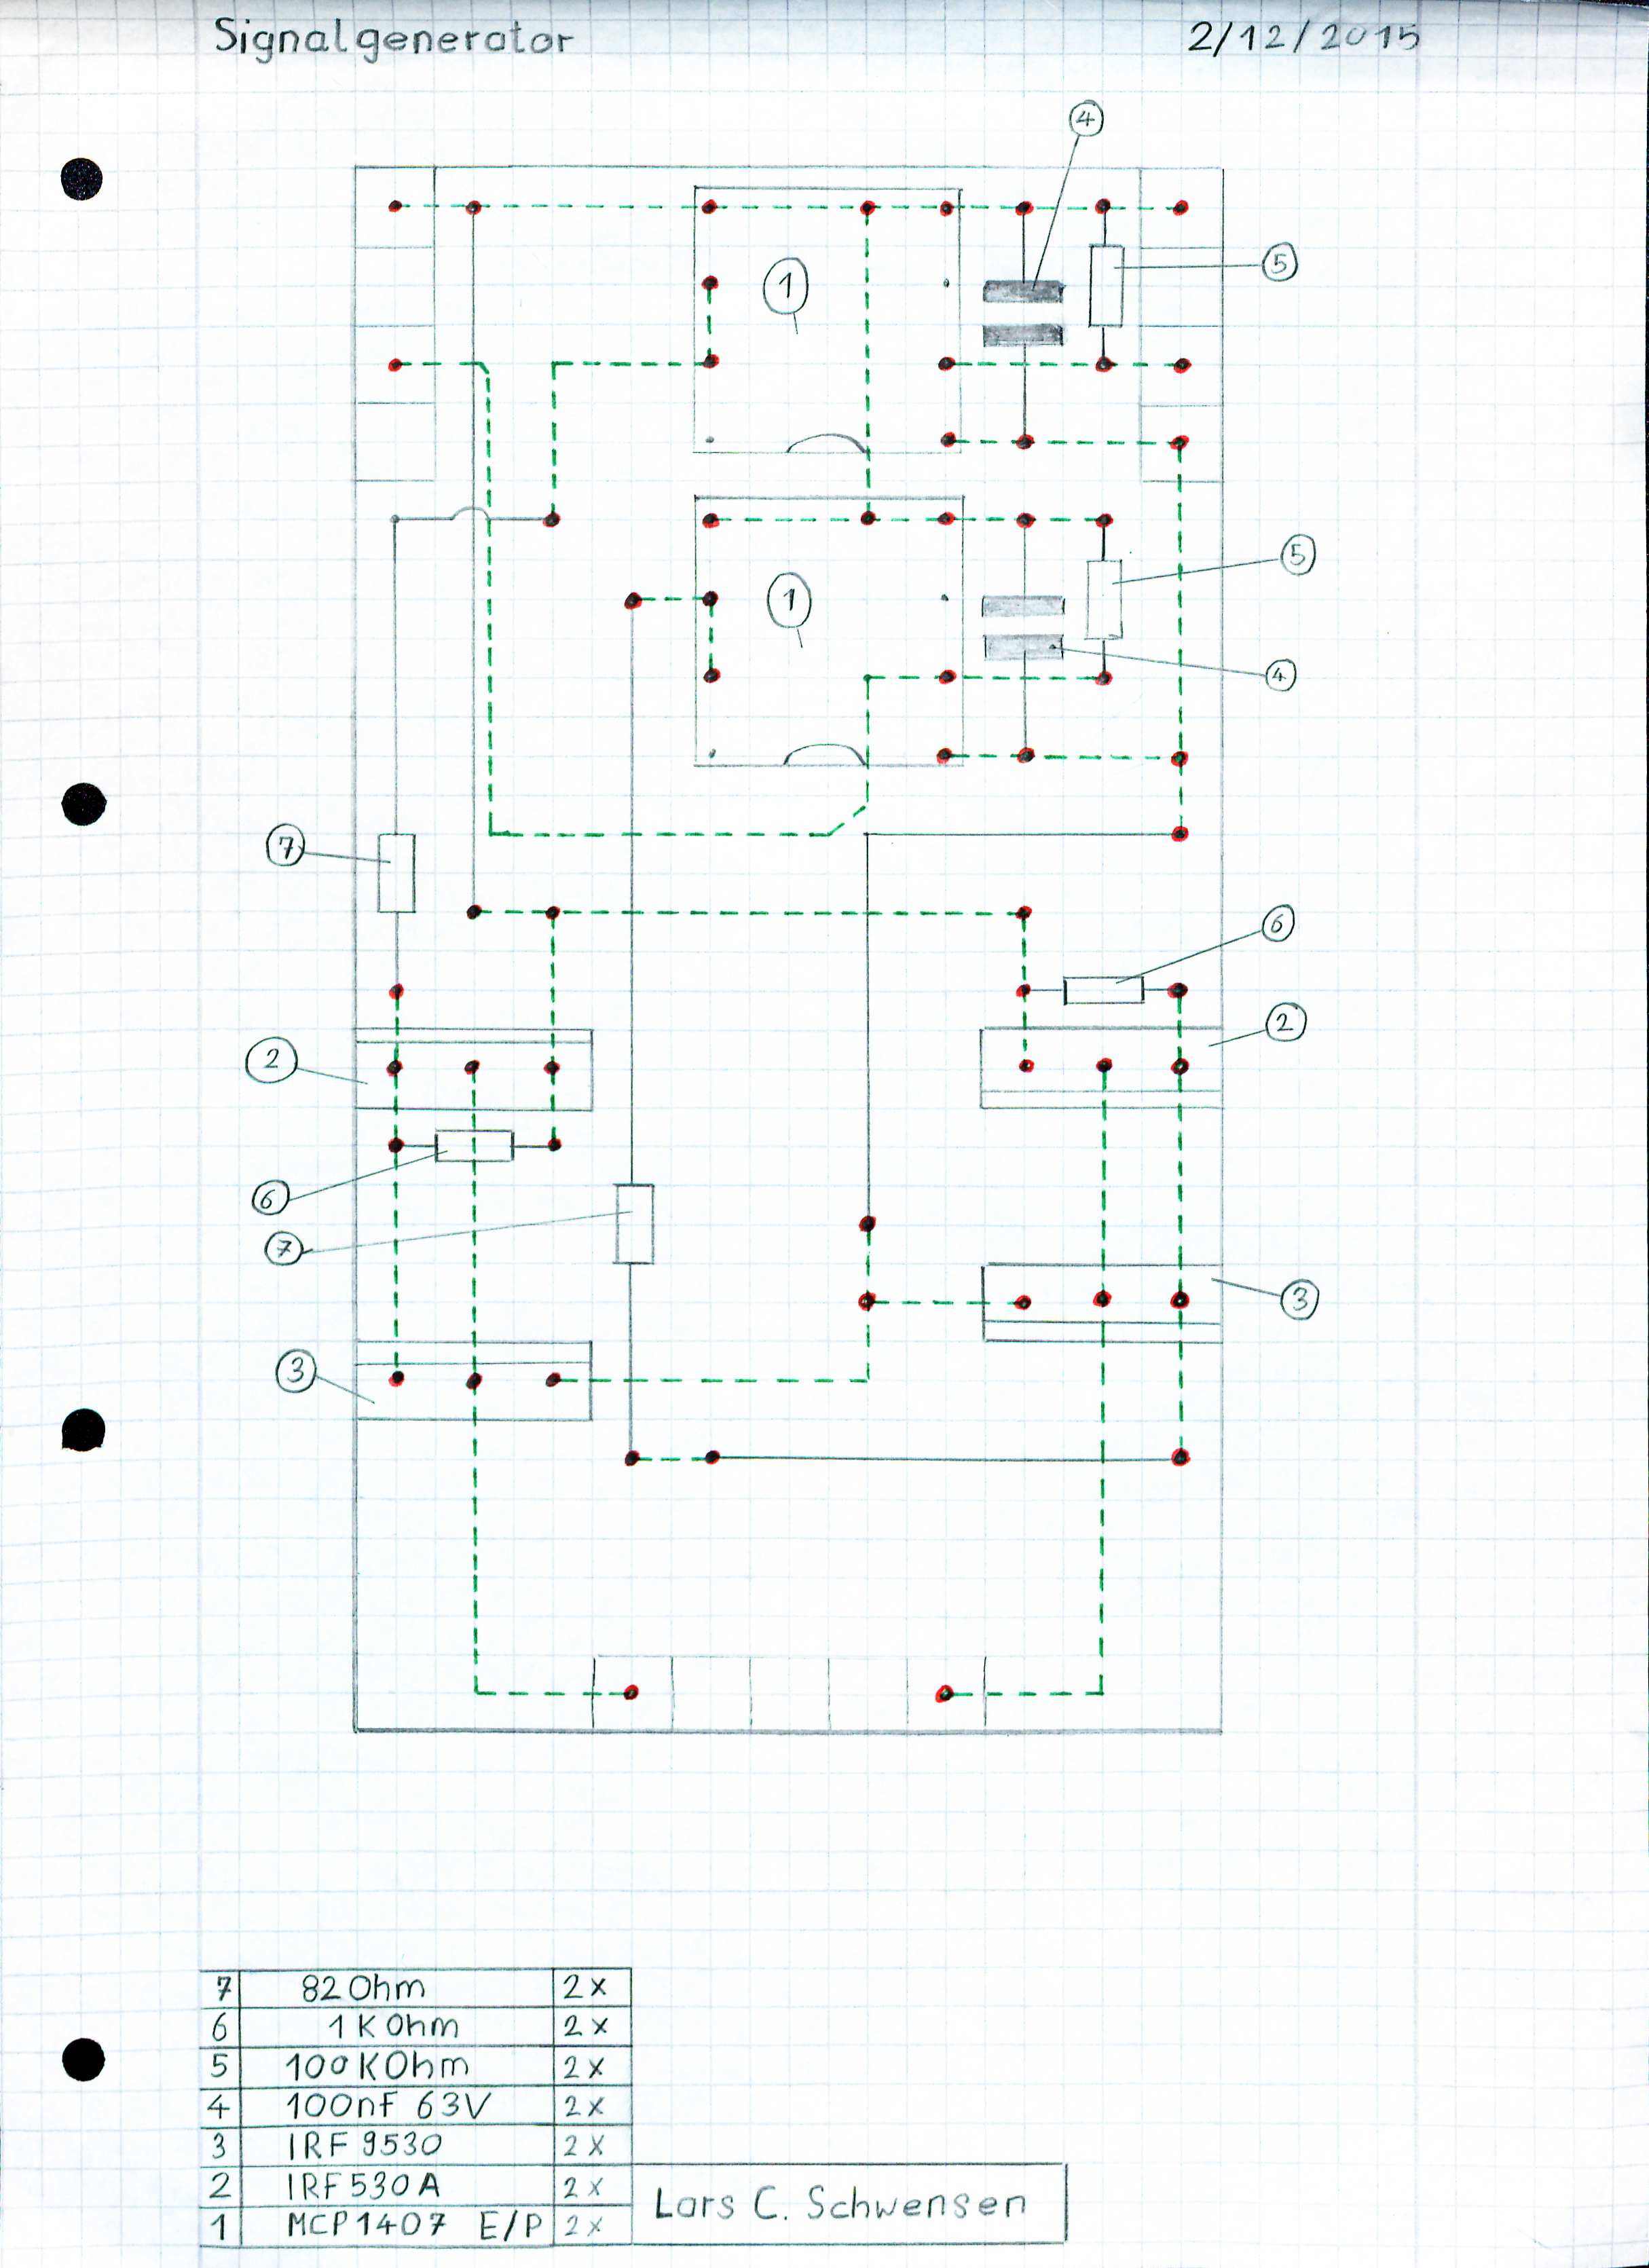 Signalgenerator 2/12/2015
4
5
1
5
1
4
7
6
2
2
6
7
3
3
7 82 Ohm 2x
6 1 K Ohm 2x
5 100 K Ohm 2x
4 100nF 63V 2x
3 IRF 9530 2x
2 IRF 530 A 2x
1 MCP 1407 E/P 2x
Lars C. Schwensen